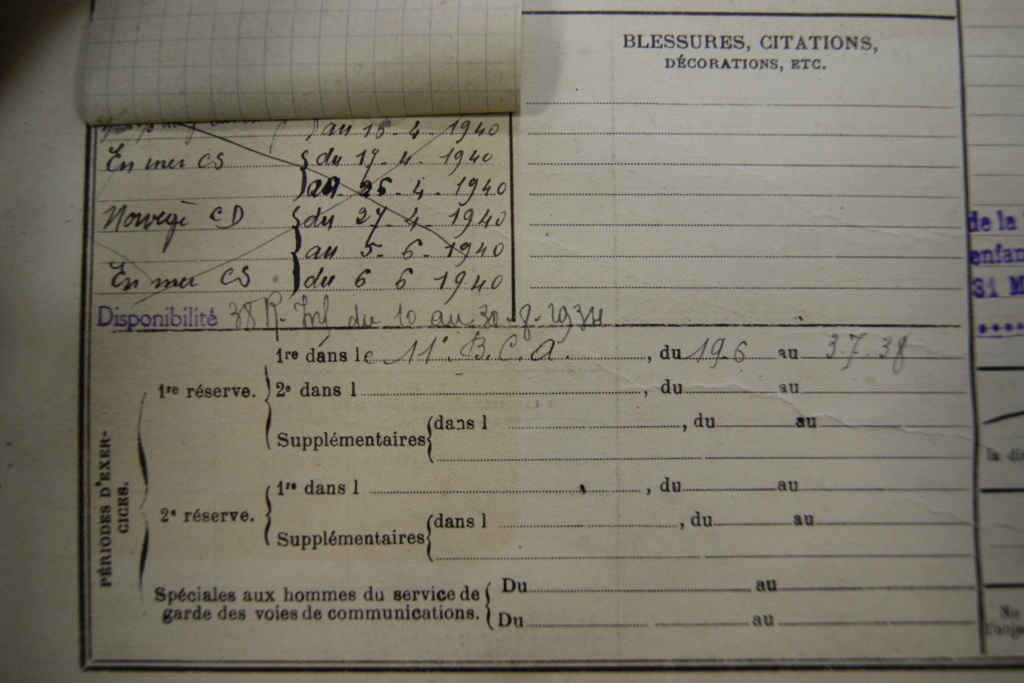 BLESSURES, CITATIONS,
DÉCORATIONS, ETC.
au 16-4-1940
En mer CS du 17-4-1940
au 25-4-1940
Norvège CD du 27-4-1940
au 5-6-1940
En mer CS du 6 6 1940
Disponibilité 38 R. Inf du 10 au 30-8-1934
1re dans le 11e B.C.A. , du 19 6 au 3-7-38
1re réserve. 2e dans l , du au
Supplémentaires dans l , du au
PÉRIODES D'EXERCICES.
1re dans l , du au
2e réserve.
Supplémentaires dans l , du au
Spéciales aux hommes du service de Du au
garde des voies de communications. Du au
de la
enfan
31 M
la di
No